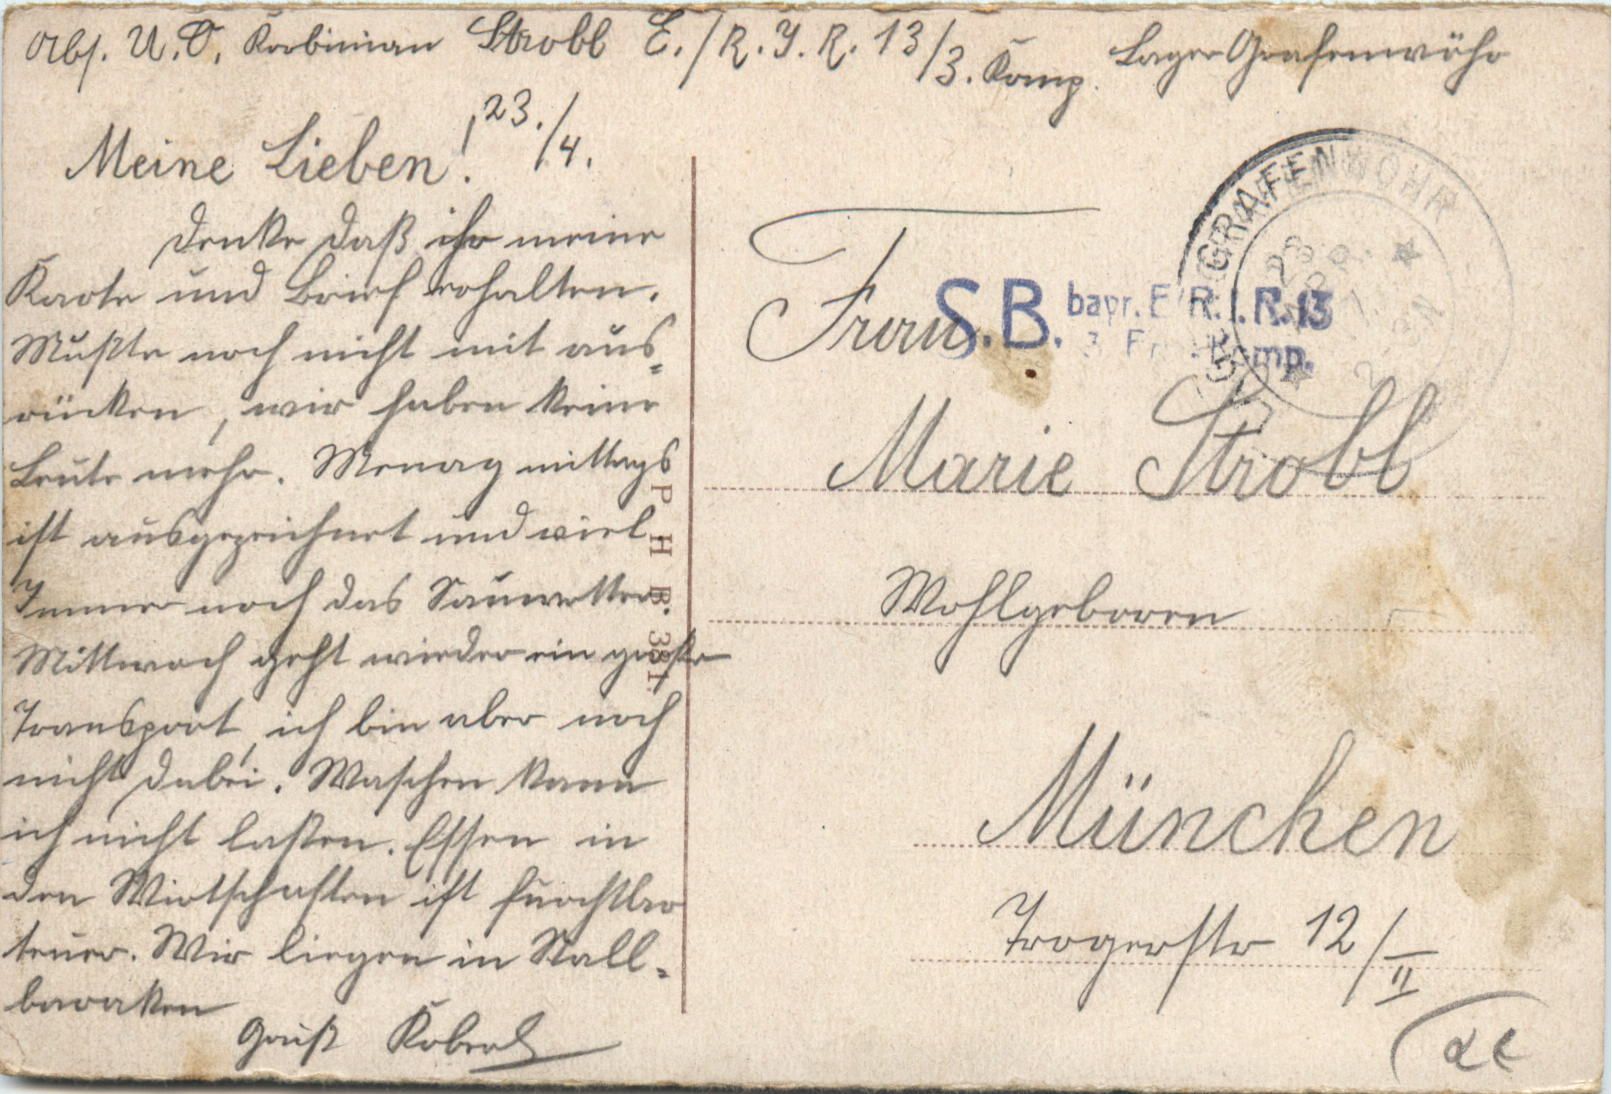 Abs. U.O. Korbinian Strobl E./R.I.R. 13/3. Komp. Lager Grafenwöhr
23./4.
Meine Lieben!
Denke daß ihr meine
Karte und Brief erhalten.
Mußte noch nicht mit aus=
rücken, wir haben keine
Leute mehr. Menag mittags
ist ausgezeichnet und viel
Immer noch das Sauwetter
Mittwoch geht wieder ein großer
Transport, ich bin aber noch
nicht dabei. Waschen kann
ich nicht laßen. Essen in
den Wirtschaften ist furchtbar
teuer. Wir liegen in Stall=
baraken
Gruß
PHB. 331.
GRAFENWÖHR
S.B. bayr. E/R.I.R. 13
3. Komp.
Frau
Marie Strobl
Wohlgeboren
München
Trogerstr 12/II